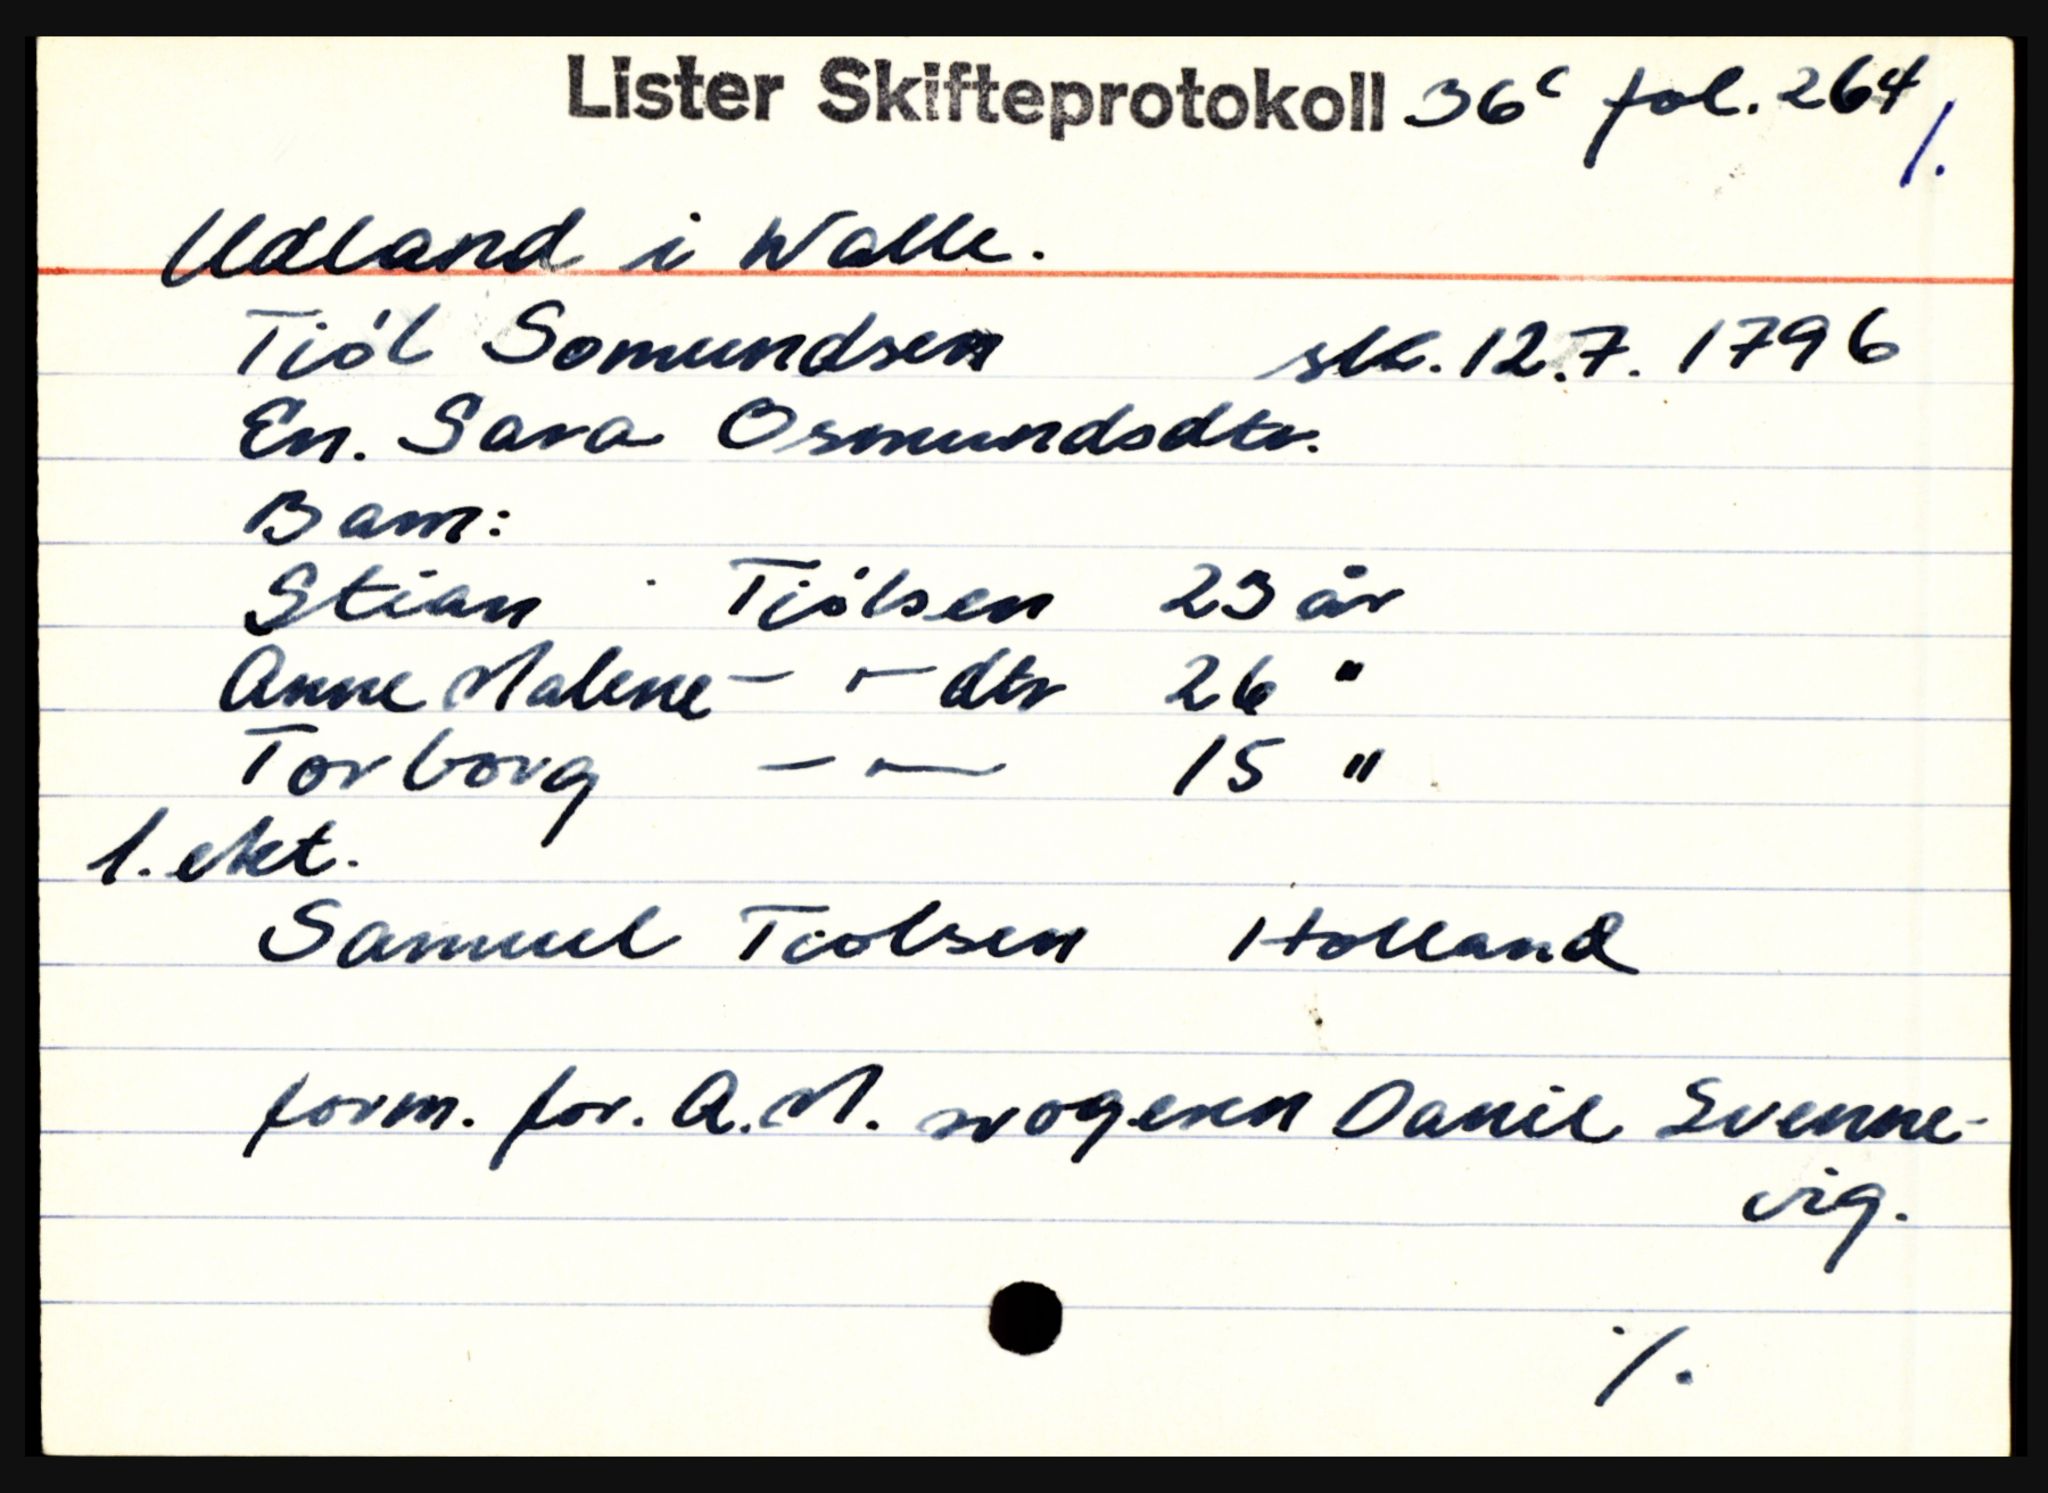 Lister Skifteprotokoll 36c fol. 264
/.
Udland i Walle.
Tiól Somundsen slk. 12.7. 1796
En. Sara Osmundsdtr.
Barn:
Stian Tiólsen 23 år
Anne Malene - - dtr 26 "
Torborg - - 15 "
1. ekt.
Samuel Tiolsen Holland
form. for. A.M. svogeren Daniel Svenne-
vig.
/.